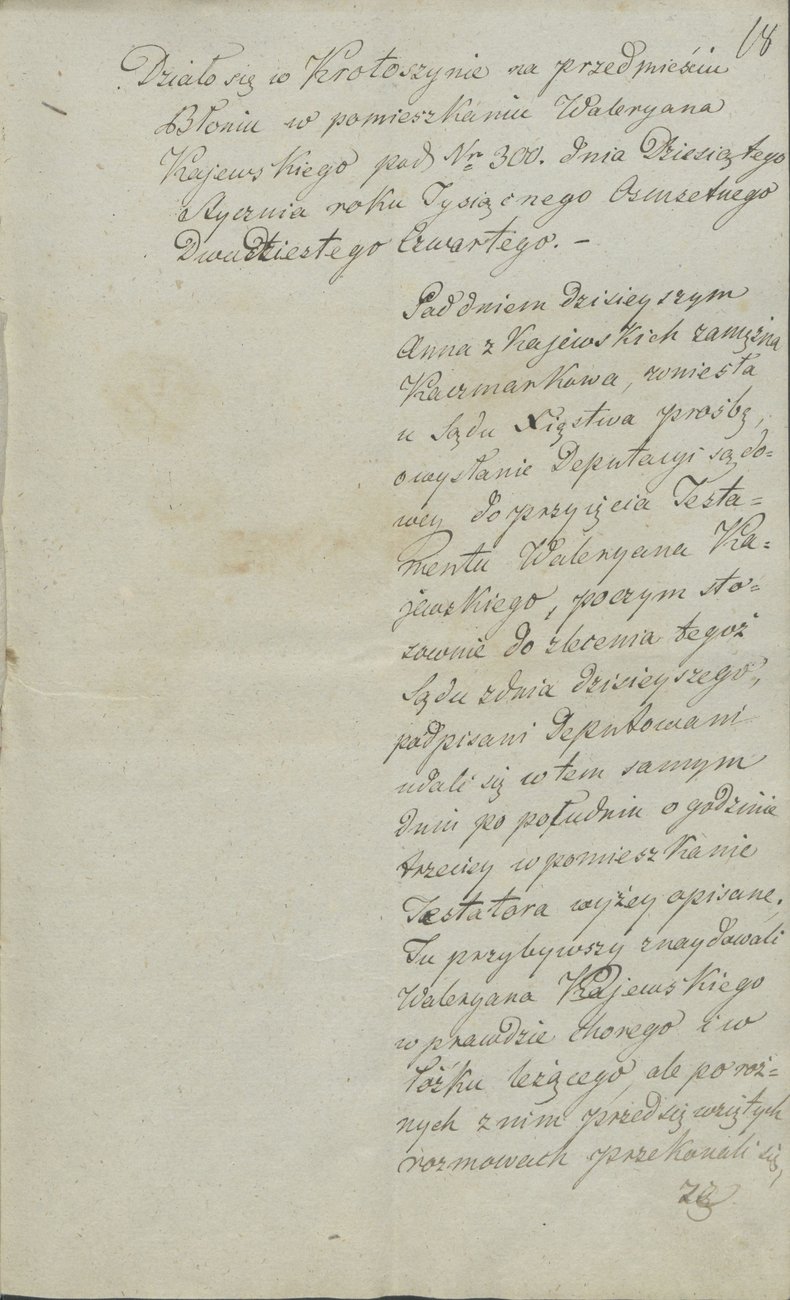 18
Działo się w Krotoszynie na przedmieściu
Błoniu w pomieszkaniu Waleryana
Kajewskiego pod Nr 300. dnia Dziesiątego
Stycznia roku Tysiącnego Osmsetnego
Dwudziestego Czwartego. –
Pod dniem dzisieyszym
Anna z Kajewskich zamężna
Kaczmarkowa, wniesła
u Sądu Xięstwa prośbę,
o wysłanie Deputacyi sądo=
wey do przyięcia Testa=
mentu Waleryana Ka=
jewskiego, poczym sto=
sownie do zlecenia tegoż
Sądu z dnia dzisieyszego,
podpisani Deputowani
udali się w tem samym
dniu po południu o godzinie
trzeciey w pomieszkanie
Testatora wyżey opisane.
Tu przybywszy znaydowali
Waleryana Kajewskiego
w prawdzie chorego i w
łóżku leżącego, ale po roż=
nych z nim przedsięwziętych
rozmowach przekonali się,
że